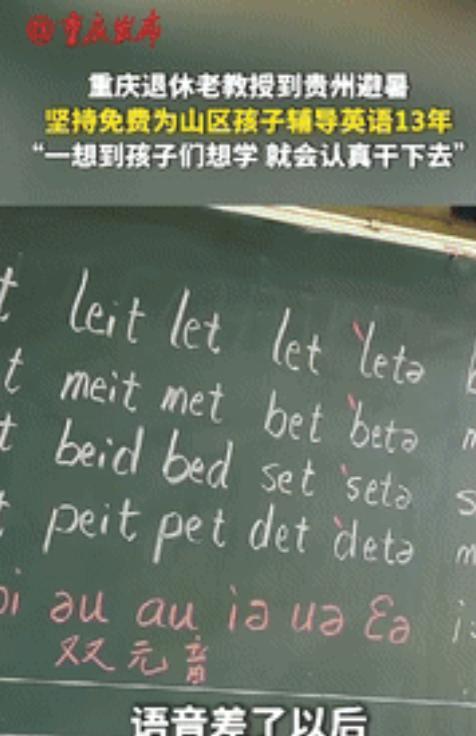 @重庆发布
重庆退休老教授到贵州避暑
坚持免费为山区孩子辅导英语13年
“一想到孩子们想学 就会认真干下去”
t leit let let 'letə
t meit met bet 'betə m
t beid bed set 'setə s
t peit pet det 'detə m
əu au iə uə ɛə i:
双元音
语音差了以后